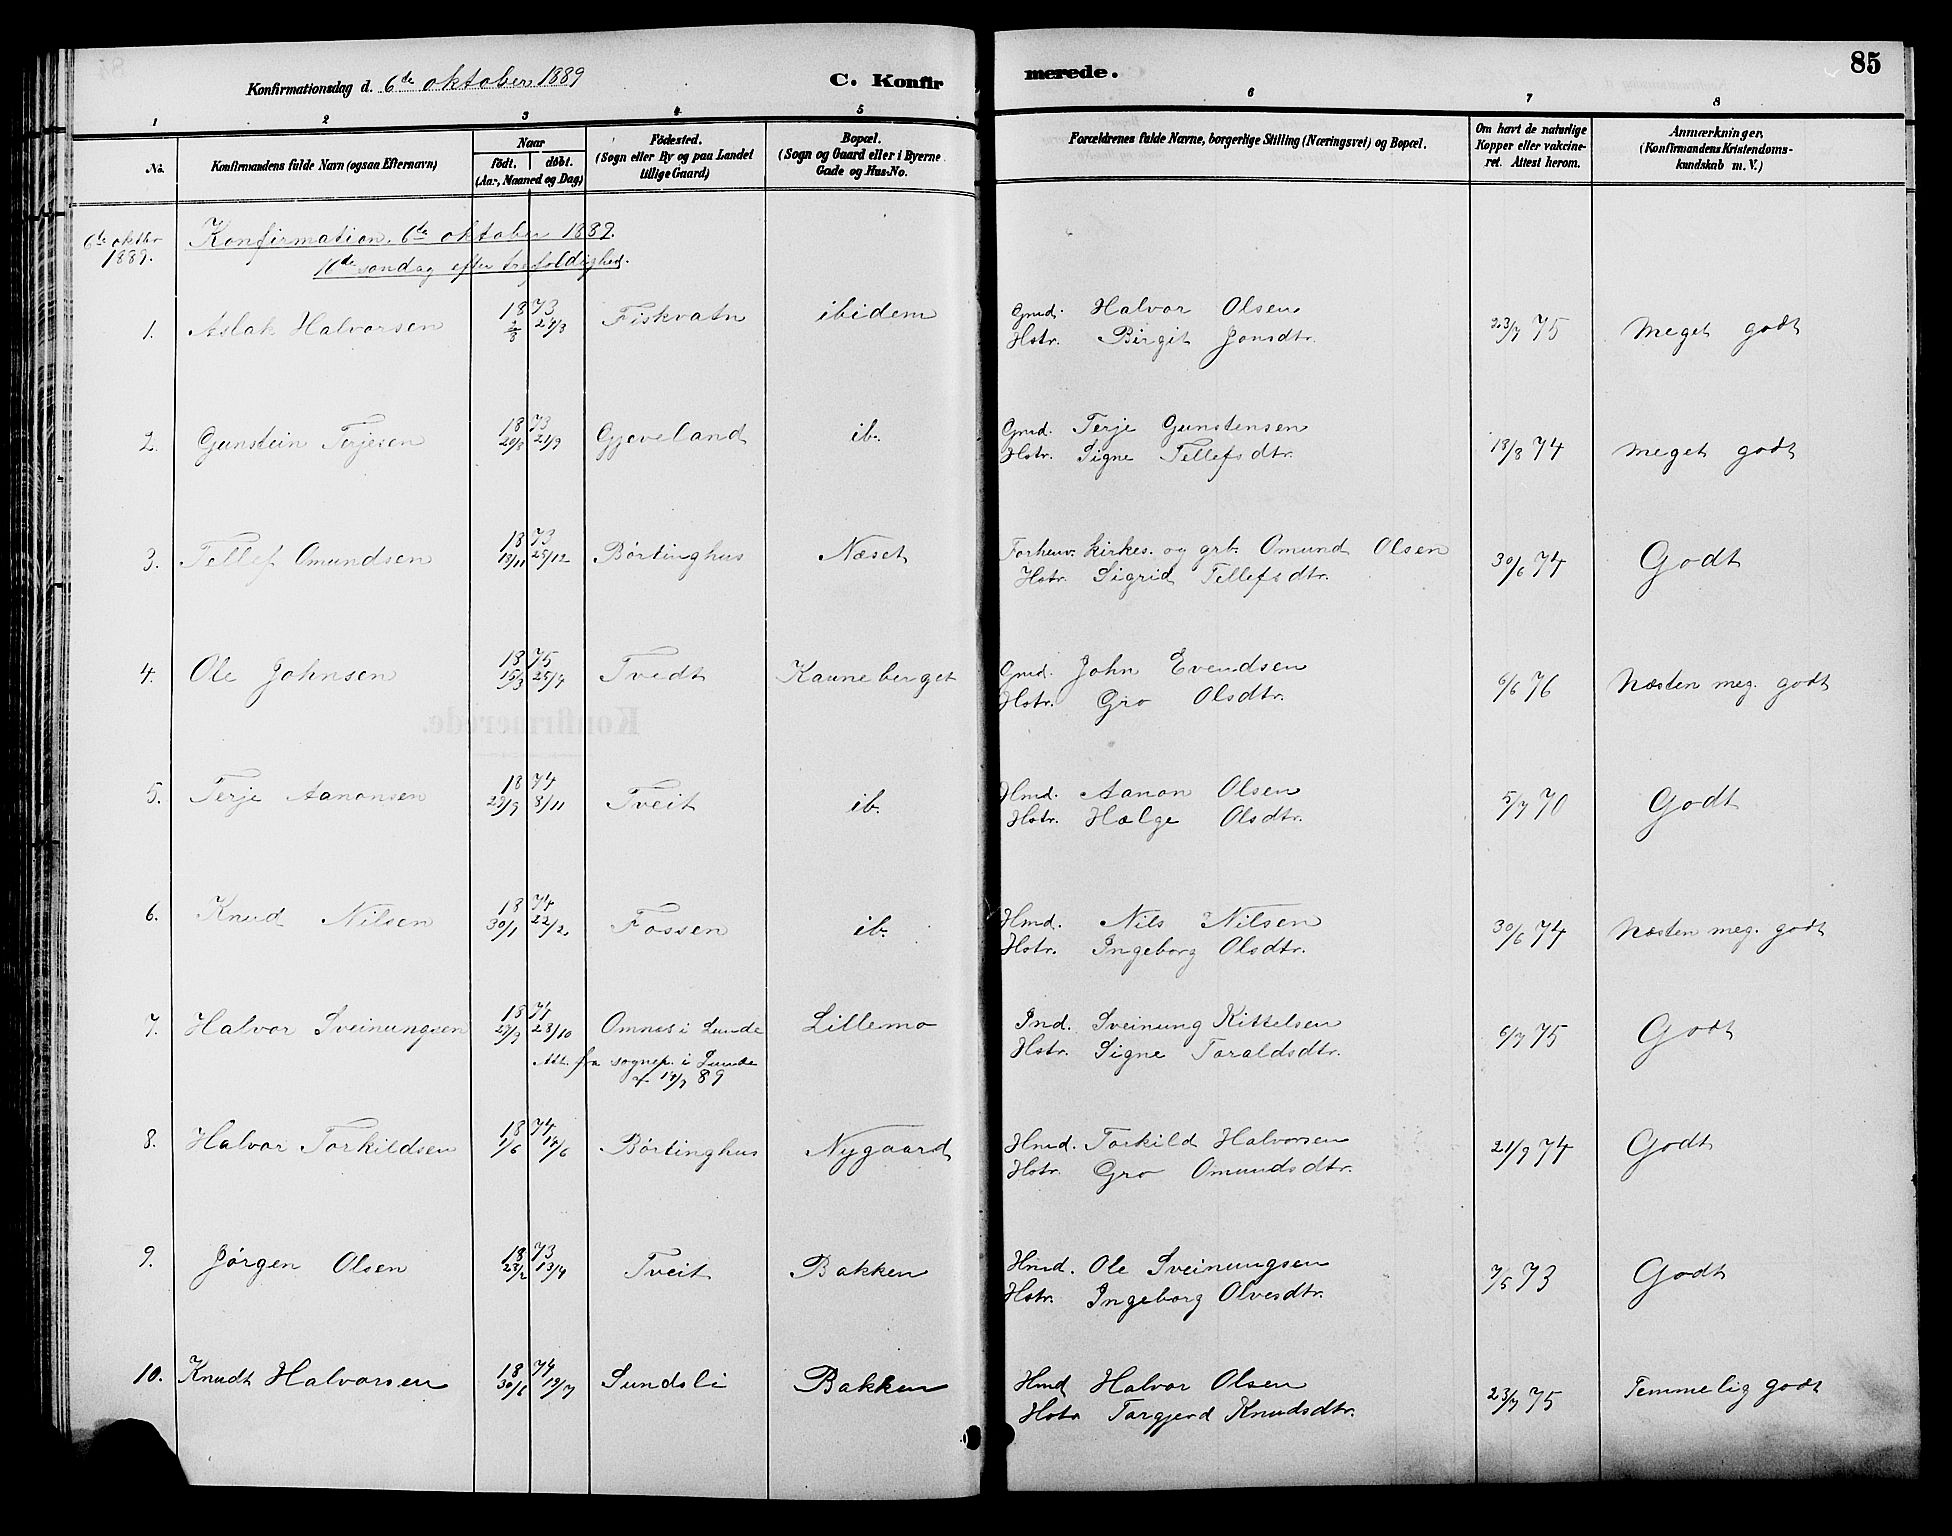 Konfirmationsdag d. 6te oktober 1889
C. Konfirmerede.
85
1 2 3 4 5 6 7 8
No.
Konfirmandens fulde Navn (ogsaa Efternavn)
Naar
födt. döbt.
(Aar, Maaned og Dag)
Födested.
(Sogn eller By og paa Landet
tillige Gaard)
Bopæl.
(Sogn og Gaard eller i Byerne
Gade og Hus-No.
Forældrenes fulde Navne, borgerlige Stilling (Næringsvei) og Bopæl.
Om havt de naturlige
Kopper eller vakcine-
ret. Attest herom.
Anmærkninger.
(Konfirmandens Kristendoms-
kundskab m. V.)
6te oktbr
1889.
Konfirmation 6te oktober 1889.
16de søndag efter trefoldighed.
1. Aslak Halvorsen 1873 2/3 24/3 Fiskvatn ibidem Gmd. Halvor Olsen 23/7 75 Meget godt
Hstr. Birgit Jonsdtr.
2. Gunstein Terjesen 1873 20/8 21/9 Gjeveland ib. Gmd. Terje Gunstensen 13/8 74 Meget godt
Hstr. Signe Tellefsdtr.
3. Tellef Omundsen 1873 13/11 25/12 Børtinghus Næset Forhenv. kirkes. og grb. Omund Olsen 30/6 74 Godt
Hstr. Sigrid Tellefsdtr.
4. Ole Johnsen 1875 15/3 25/4 Tvedt Kauneberget Gmd. John Evendsen 6/6 76 Næsten meg. godt
Hstr. Gro Olsdtr.
5. Terje Aanonsen 1874 27/9 8/11 Tveit ib. Hmd. Aanon Olsen 5/7 70 Godt
Hstr. Hælge Olsdtr.
6. Knud Nilsen 1874 30/1 22/2 Fossen ib. Hmd. Nils Nilsen 30/6 74 Næsten meg. godt
Hstr. Ingeborg Olsdtr.
7. Halvor Sveinungsen 1874 27/9 28/10 Omnes i Lunde Lillemo Ind. Sveinung Kittelsen 6/7 75 Godt
Att. fra sognep. i Lunde Hstr. Signe Taraldsdtr.
af 14/9 89
8. Halvor Torkildsen 1874 1/6 14/6 Børtinghus Nygaard Hmd. Torkild Halvorsen 21/9 74 Godt
Hstr. Gro Omundsdtr.
9. Jørgen Olsen 1873 23/2 13/4 Tveit Bakken Hmd. Ole Sveinungsen 7/5 73 Godt
Hstr. Ingeborg Olvesdtr.
10. Knudt Halvorsen 1874 30/6 19/7 Sundsli Bakken Hmd Halvor Olsen 23/7 75 Temmelig godt
Hstr Targjerd Knudsdtr.